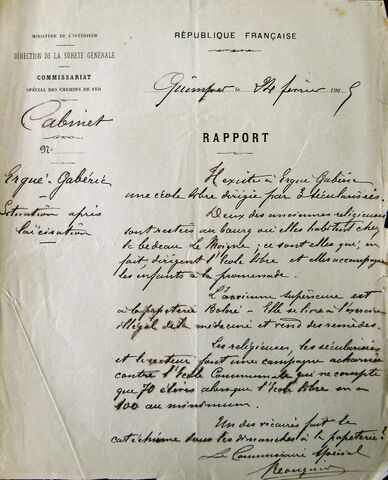 MINISTÈRE DE L'INTÉRIEUR
DIRECTION DE LA SURETÉ GÉNÉRALE
COMMISSARIAT
SPÉCIAL DES CHEMINS DE FER
Cabinet
N°
Ergué-Gabéric
Situation après
laïcisation
RÉPUBLIQUE FRANÇAISE
Quimper le 24 février 1905
RAPPORT
Il existe à Ergué Gabéric
une école libre dirigée par 3 sécularisées.
Deux des anciennes religieuses
sont restées au bourg où elles habitent chez
le bedeau Le Moigne ; ce sont elles qui, en
fait dirigent l'Ecole libre et elles accompagnent
les enfants à la promenade.
L'ancienne Supérieure est
à la papeterie Bolloré - Elle se livre à l'exercice
illégal de la médecine et vend des remèdes.
Les religieuses, les sécularisées
et le recteur font une campagne acharnée
contre l'Ecole Communale qui ne compte
que 70 élèves alors que l'Ecole libre en a
100 au minimum.
Un des vicaires fait le
catéchisme tous les dimanches à la papeterie.
Le Commissaire Spécial